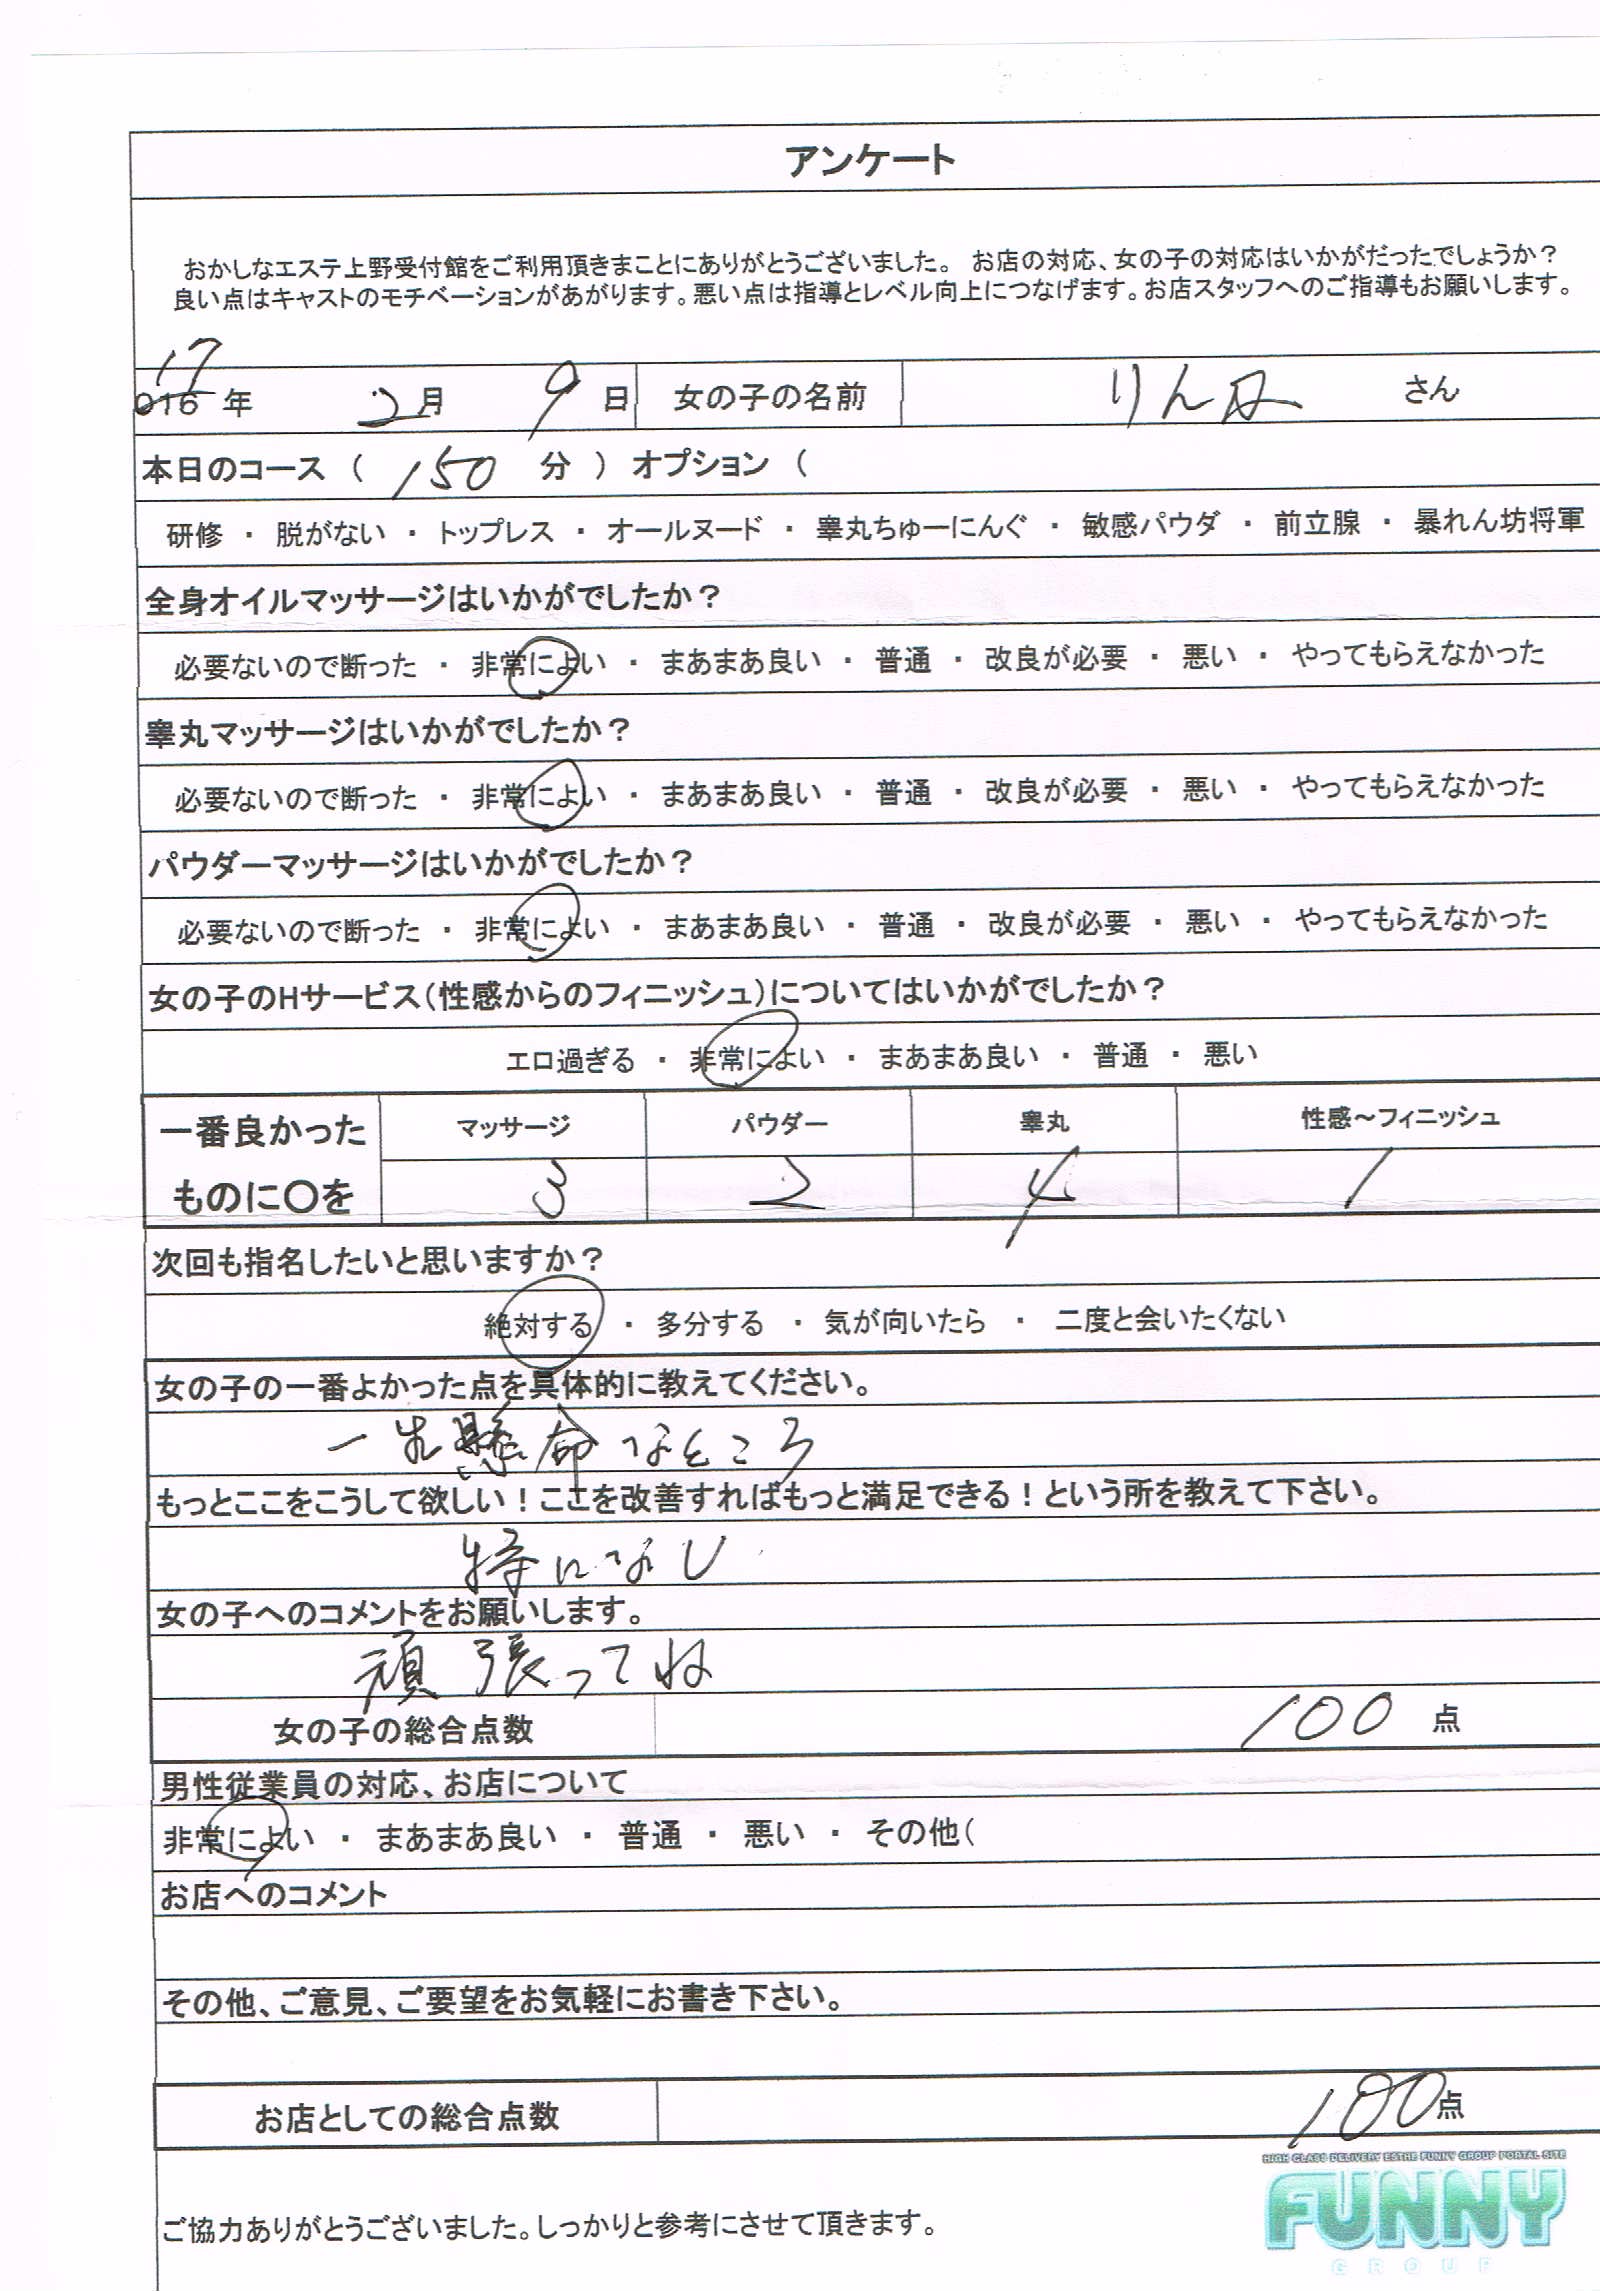 アンケート
おかしなエステ上野受付館をご利用頂きまことにありがとうございました。 お店の対応、女の子の対応はいかがだったでしょうか？
良い点はキャストのモチベーションがあがります。悪い点は指導とレベル向上につなげます。お店スタッフへのご指導もお願いします。
17
016 年 2 月 9 日 女の子の名前 りんな さん
本日のコース （ 150 分 ） オプション （
研修 ・ 脱がない ・ トップレス ・ オールヌード ・ 睾丸ちゅーにんぐ ・ 敏感パウダ ・ 前立腺 ・ 暴れん坊将軍
全身オイルマッサージはいかがでしたか？
必要ないので断った ・ 非常によい ・ まあまあ良い ・ 普通 ・ 改良が必要 ・ 悪い ・ やってもらえなかった
睾丸マッサージはいかがでしたか？
必要ないので断った ・ 非常によい ・ まあまあ良い ・ 普通 ・ 改良が必要 ・ 悪い ・ やってもらえなかった
パウダーマッサージはいかがでしたか？
必要ないので断った ・ 非常によい ・ まあまあ良い ・ 普通 ・ 改良が必要 ・ 悪い ・ やってもらえなかった
女の子のHサービス（性感からのフィニッシュ）についてはいかがでしたか？
エロ過ぎる ・ 非常によい ・ まあまあ良い ・ 普通 ・ 悪い
一番良かった マッサージ パウダー 睾丸 性感～フィニッシュ
ものに〇を 3 2 4 1
次回も指名したいと思いますか？
絶対する ・ 多分する ・ 気が向いたら ・ 二度と会いたくない
女の子の一番よかった点を具体的に教えてください。
一生懸命なところ
もっとここをこうして欲しい！ここを改善すればもっと満足できる！という所を教えて下さい。
特になし
女の子へのコメントをお願いします。
頑張ってね
女の子の総合点数 100 点
男性従業員の対応、お店について
非常によい ・ まあまあ良い ・ 普通 ・ 悪い ・ その他（
お店へのコメント
その他、ご意見、ご要望をお気軽にお書き下さい。
お店としての総合点数 100 点
HIGH CLASS DELIVERY ESTHE FUNNY GROUP PORTAL SITE
FUNNY
GROUP
ご協力ありがとうございました。しっかりと参考にさせて頂きます。